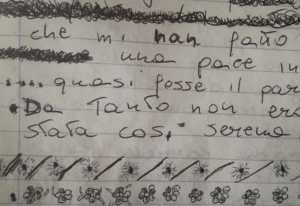 che mi han fatto
una pace in
.... quasi fosse il par
Da Tanto non ero
stata così serena